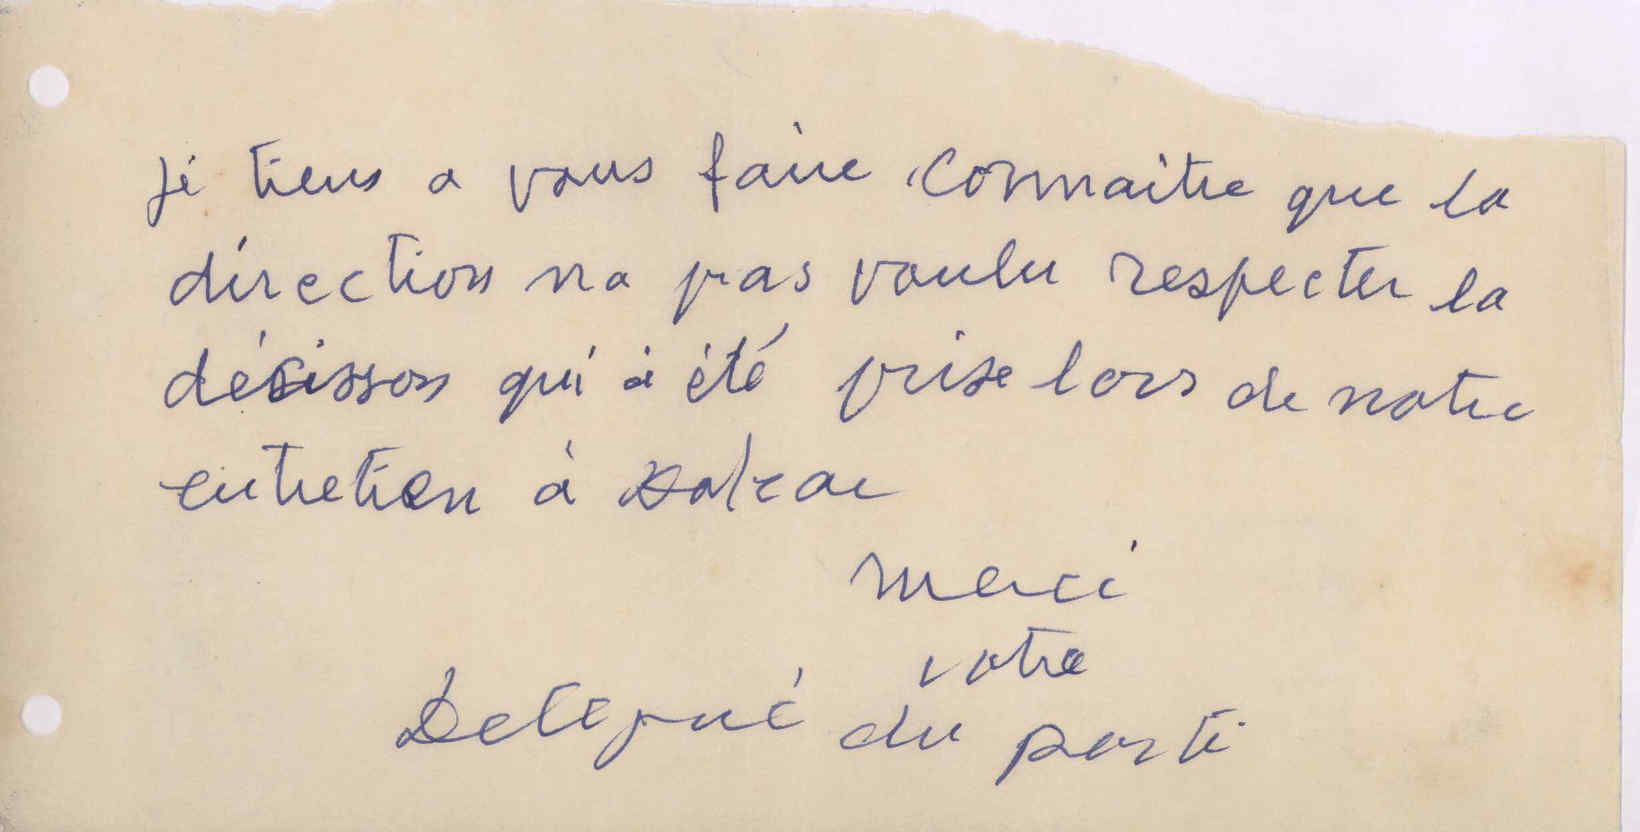 Je tiens a vous faire connaitre que la
direction na pas voulu respecter la
décisson qui à été prise lors de notre
entretien à Balzac
merci
votre
Delegué du parti